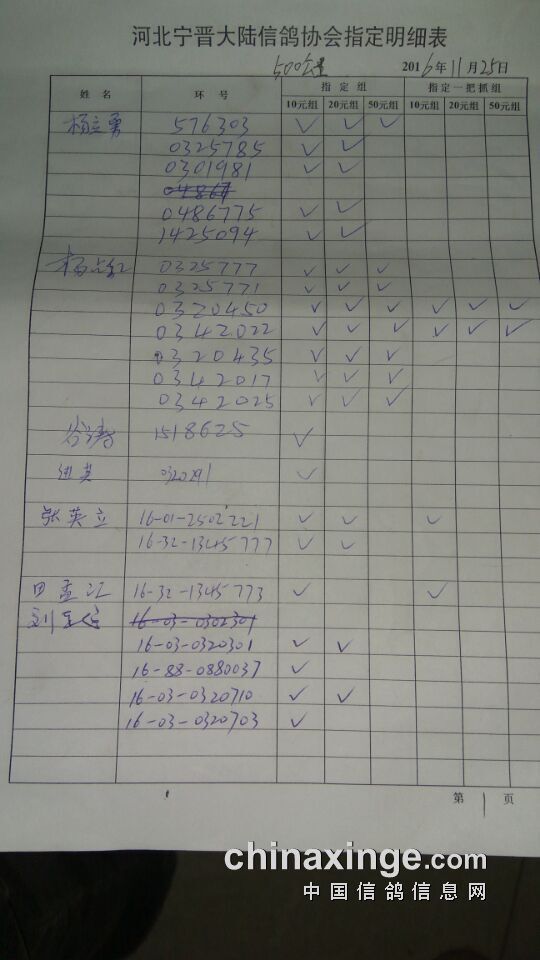 河北宁晋大陆信鸽协会指定明细表
500公里 2016年11月25日
姓名 环号 指定组 指定一把抓组
10元组 20元组 50元组 10元组 20元组 50元组
杨立勇 576303 ✓ ✓ ✓
0325785 ✓ ✓
0301981 ✓ ✓
0486775 ✓ ✓
1425094 ✓ ✓
杨 0325777 ✓ ✓ ✓
0325771 ✓ ✓ ✓
0320450 ✓ ✓ ✓ ✓ ✓ ✓
0342022 ✓ ✓ ✓ ✓ ✓ ✓
0320435 ✓ ✓ ✓
0342017 ✓ ✓ ✓
0342025 ✓ ✓ ✓
1518625 ✓
英 ✓
张英立 16-01-2502221 ✓ ✓ ✓
16-32-1345777 ✓ ✓
田孟江 16-32-1345773 ✓ ✓
刘 16-03-0302301
16-03-0320301 ✓ ✓
16-88-0880037 ✓
16-03-0320710 ✓ ✓
16-03-0320703 ✓
第 1 页
chinaxinge.com
中国信鸽信息网